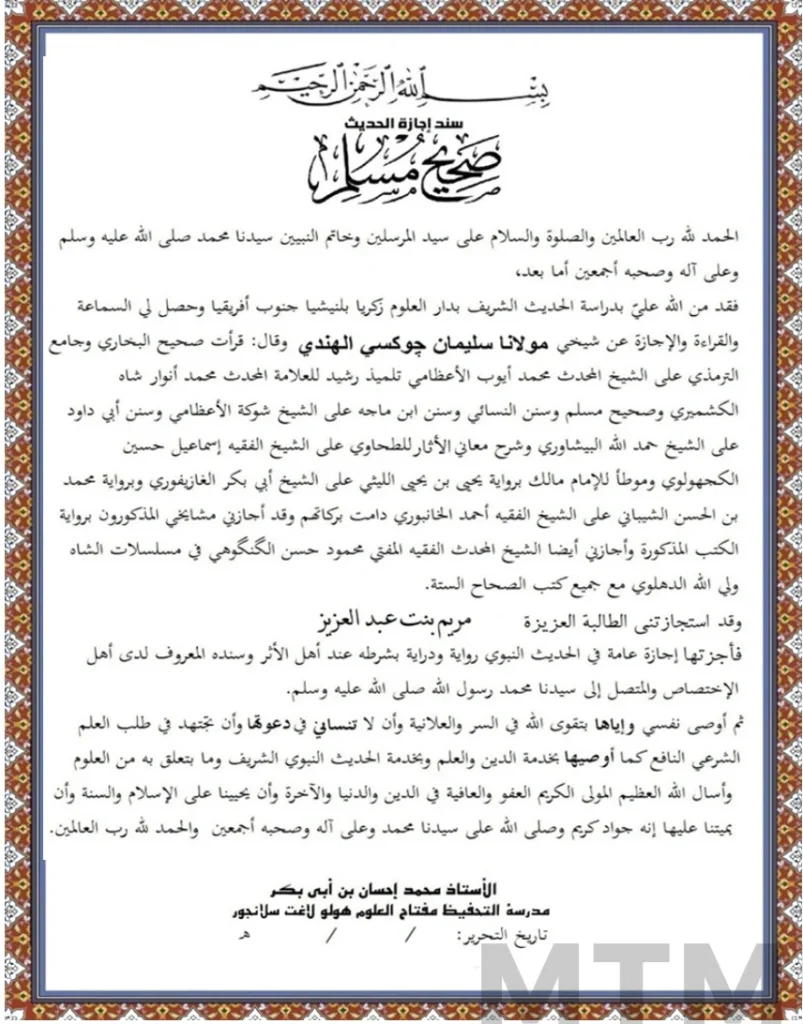 بسم الله الرحمن الرحيم
سند إجازة الحديث
صحيح مسلم
الحمد لله رب العالمين والصلوة والسلام على سيد المرسلين وخاتم النبيين سيدنا محمد صلى الله عليه وسلم
وعلى آله وصحبه أجمعين أما بعد،
فقد من الله عليّ بدراسة الحديث الشريف بدار العلوم زكريا بلنيشيا جنوب أفريقيا وحصل لي السماعة
والقراءة والإجازة عن شيخي مولانا سليمان چوكسي الهندي وقال: قرأت صحيح البخاري وجامع
الترمذي على الشيخ المحدث محمد أيوب الأعظامي تلميذ رشيد للعلامة المحدث محمد أنوار شاه
الكشميري وصحيح مسلم وسنن النسائي وسنن ابن ماجه على الشيخ شوكة الأعظامي وسنن أبي داود
على الشيخ حمد الله البيشاوري وشرح معاني الأثار للطحاوي على الشيخ الفقيه إسماعيل حسين
الكجهولوي وموطأ للإمام مالك برواية يحيى بن يحيى الليثي على الشيخ أبي بكر الغازيفوري وبرواية محمد
بن الحسن الشيباني على الشيخ الفقيه أحمد الخانبوري دامت بركاتهم وقد أجازني مشايخي المذكورون برواية
الكتب المذكورة وأجازني أيضا الشيخ المحدث الفقيه المفتي محمود حسن الگنگوهي في مسلسلات الشاه
ولي الله الدهلوي مع جميع كتب الصحاح الستة.
وقد استجازتنى الطالبة العزيزة مريم بنت عبد العزيز
فأجزتها إجازة عامة في الحديث النبوي رواية ودراية بشرطه عند أهل الأثر وسنده المعروف لدى أهل
الإختصاص والمتصل إلى سيدنا محمد رسول الله صلى الله عليه وسلم.
ثم أوصى نفسي وإياها بتقوى الله في السر والعلانية وأن لا تنساني في دعوتها وأن تجتهد في طلب العلم
الشرعي النافع كما أوصيها بخدمة الدين والعلم وبخدمة الحديث النبوي الشريف وما يتعلق به من العلوم
وأسال الله العظيم المولى الكريم العفو والعافية في الدين والدنيا والآخرة وأن يحيينا على الإسلام والسنة وأن
يميتنا عليها إنه جواد كريم وصلى الله على سيدنا محمد وعلى آله وصحبه أجمعين والحمد لله رب العالمين.
الأستاذ محمد إحسان بن أبى بكر
مدرسة التحفيظ مفتاح العلوم هولو لاغت سلانجور
تاريخ التحرير: / / هـ
MTM